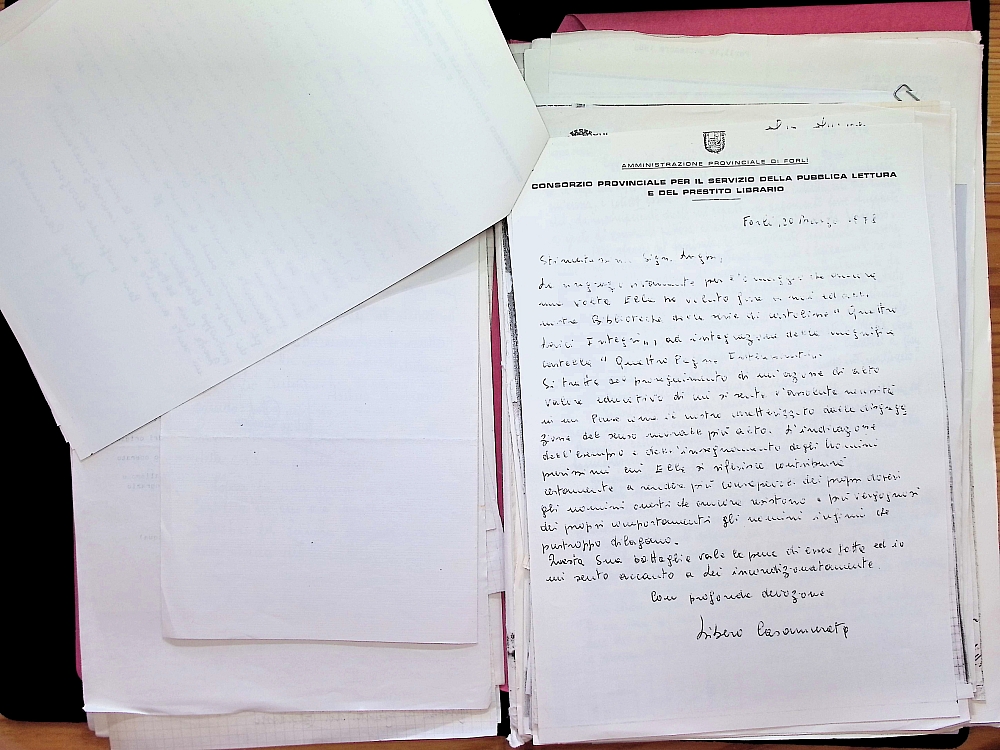 AMMINISTRAZIONE PROVINCIALE DI FORLI
CONSORZIO PROVINCIALE PER IL SERVIZIO DELLA PUBBLICA LETTURA
E DEL PRESTITO LIBRARIO
Forlì, 20 Marzo 1978
La ringrazio vivamente per l'omaggio che ancora
una volta Ella ha voluto fare a me ed alle
nostre Biblioteche della serie di cartoline "Quattro
Laici Integri", ad integrazione della magnifica
cartella "Quattro Pagine
Si tratta del proseguimento di un'azione di alto
valore educativo di cui si sente l'assoluta necessità
in un Paese come il nostro caratterizzato dalla disgrega
zione del senso morale più alto. L'indicazione
dell'esempio e dell'insegnamento degli uomini
purissimi cui Ella si riferisce contribuirà
certamente a rendere più consapevoli dei propri doveri
gli uomini onesti che ancora resistono e più vergognosi
dei propri comportamenti gli uomini che
purtroppo dilagano.
Questa Sua battaglia vale la pena di essere fatta ed io
mi sento accanto a Lei incondizionatamente.
Con profonda devozione
Libero Casamurata